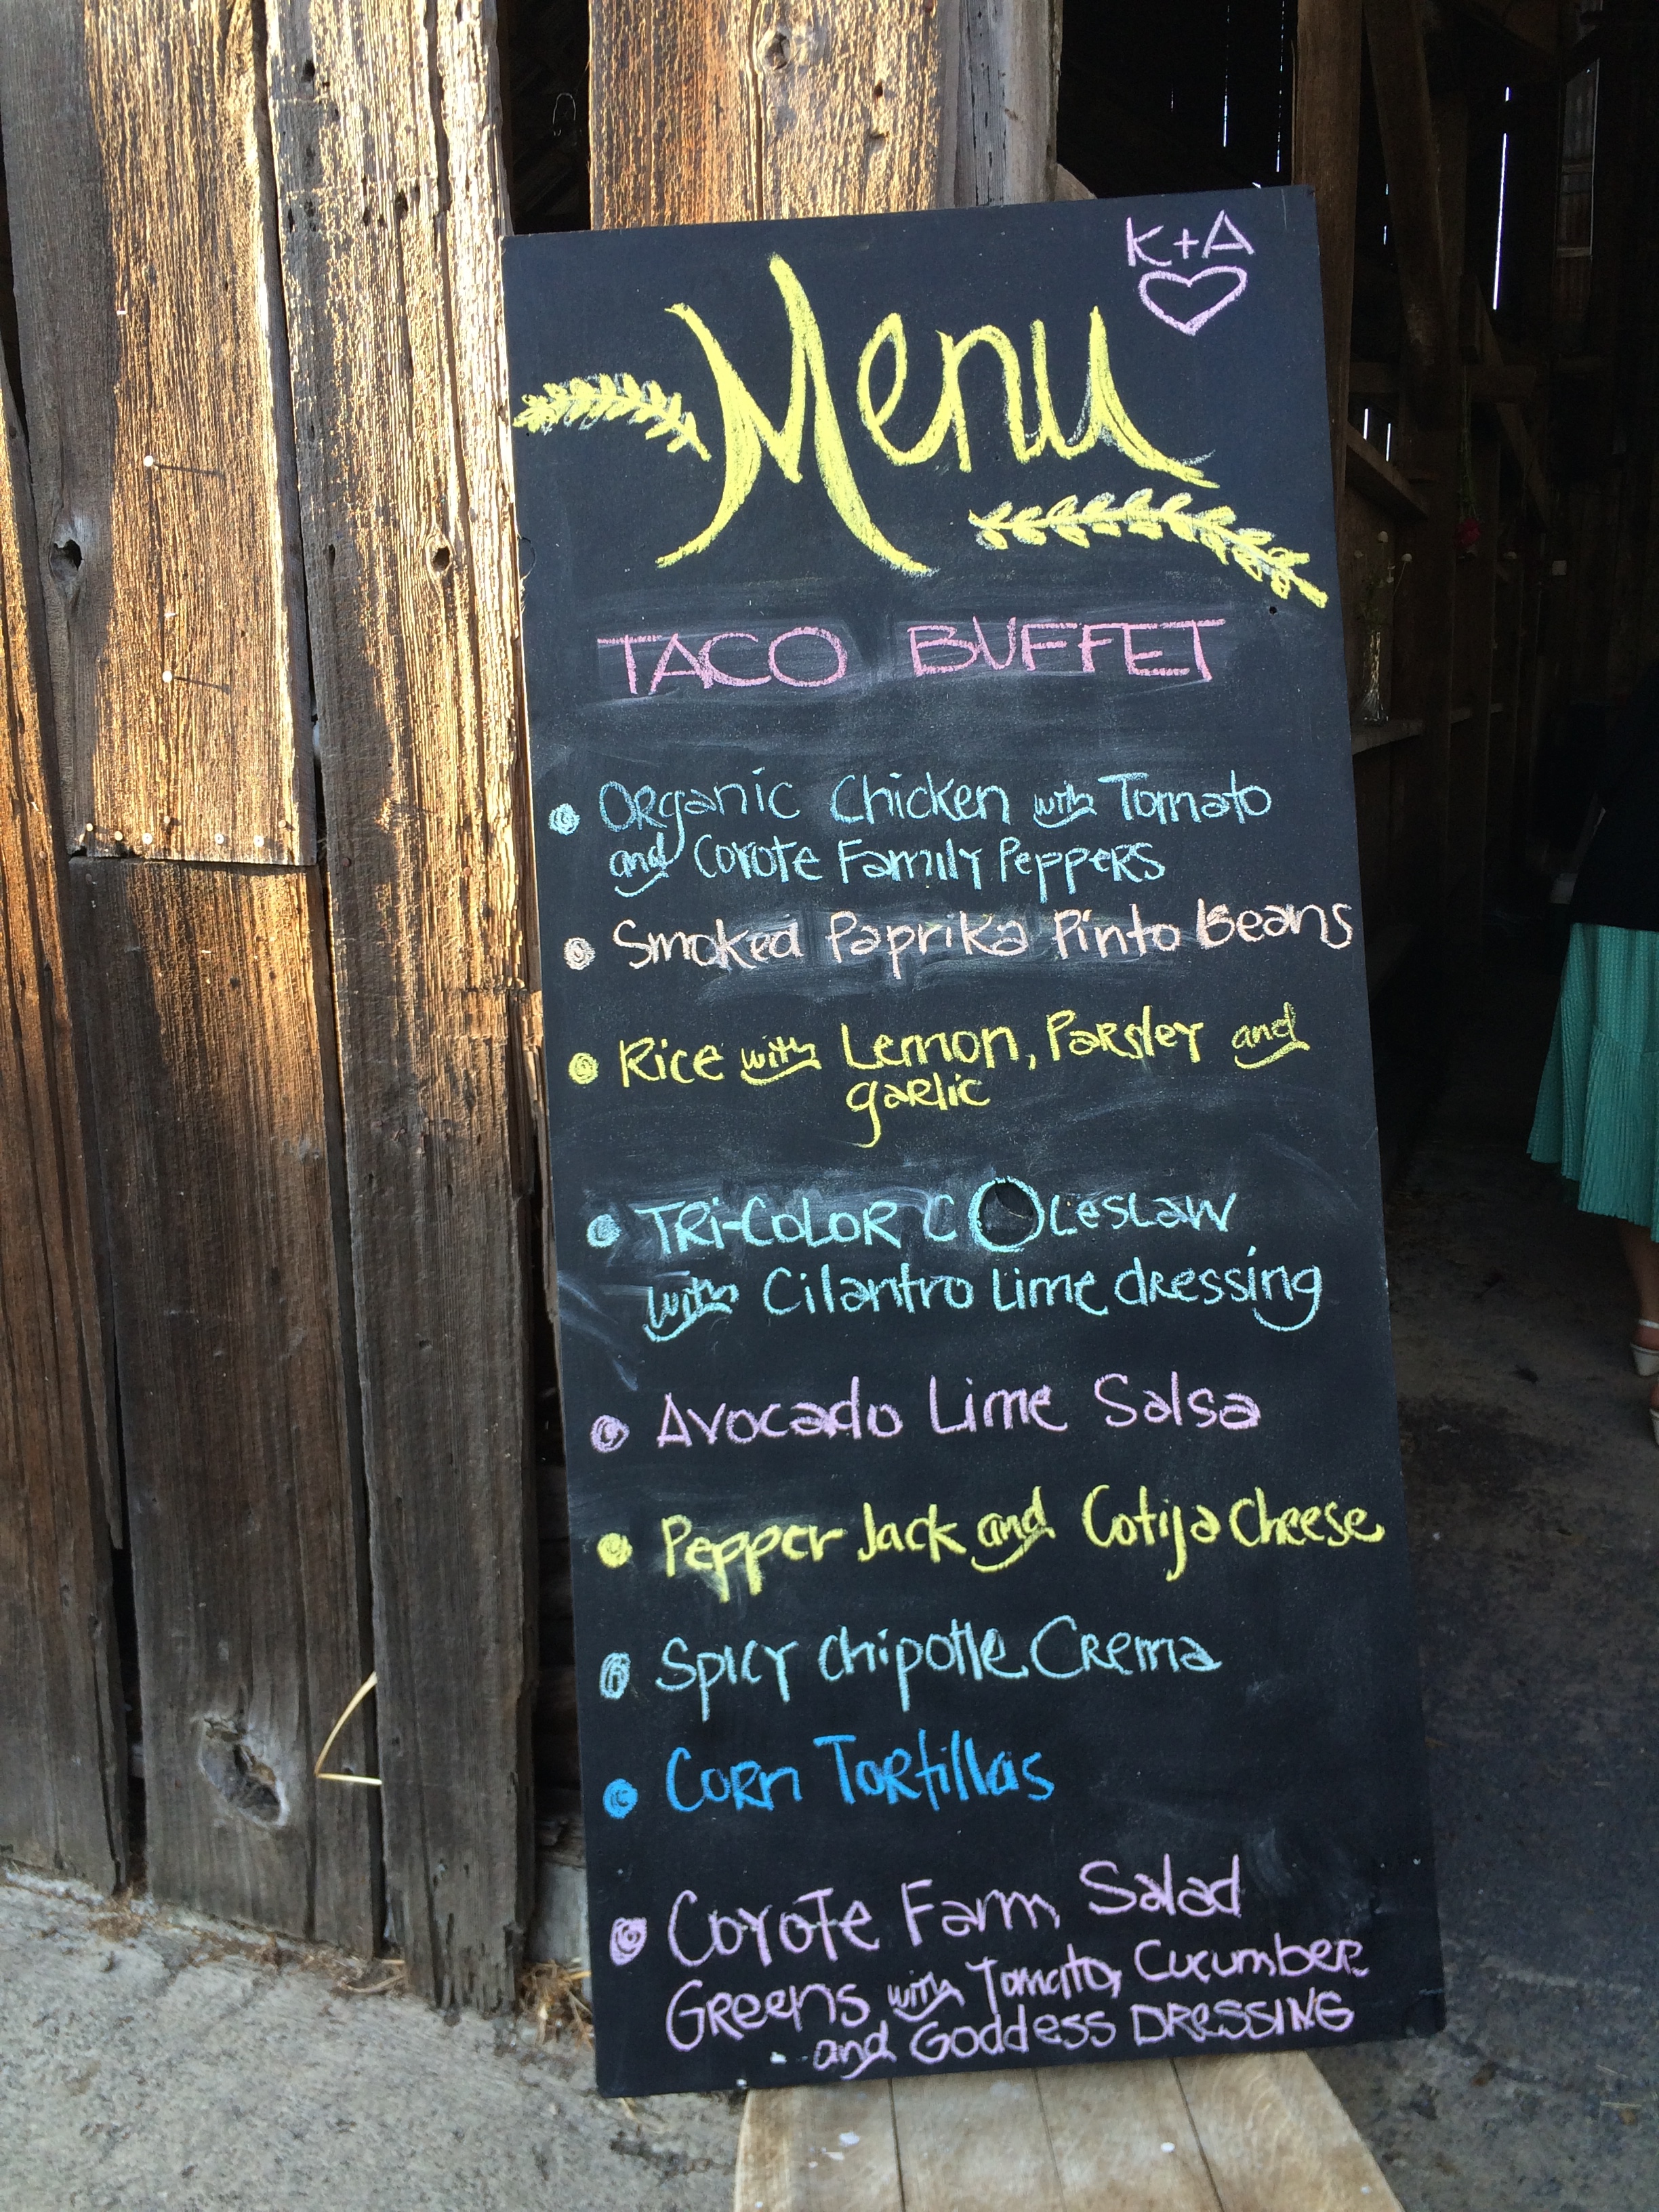 K+A
Menu
TACO BUFFET
Organic Chicken with Tomato
and Coyote Family Peppers
Smoked Paprika Pinto Beans
Rice with Lemon, Parsley and
garlic
TRi-COLOR COLESLAW
with Cilantro Lime dressing
Avocado Lime Salsa
Pepper Jack and Cotija Cheese
Spicy Chipotle Crema
Corn Tortillas
Coyote Farm Salad
Greens with Tomato, Cucumber
and Goddess DRESSING